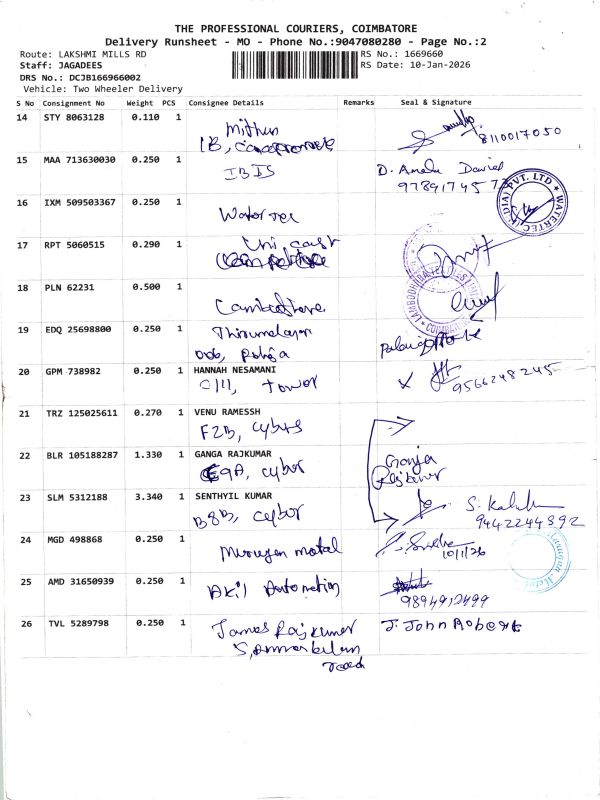 THE PROFESSIONAL COURIERS, COIMBATORE
Delivery Runsheet - MO - Phone No.:9047080280 - Page No.:2
Route: LAKSHMI MILLS RD RS No.: 1669660
Staff: JAGADEES RS Date: 10-Jan-2026
DRS No.: DCJB166966002
Vehicle: Two Wheeler Delivery
S No Consignment No Weight PCS Consignee Details Remarks Seal & Signature
14 STY 8063128 0.110 1 Mithun
1B, 8110017050
15 MAA 713630030 0.250 1 IBIS D. Davies
16 IXM 509503367 0.250 1 Water tec
WATERTEC (INDIA) PVT. LTD
17 RPT 5060515 0.290 1 Uni cast
18 PLN 62231 0.500 1
19 EDQ 25698800 0.250 1 Thirumalayan
20 GPM 738982 0.250 1 HANNAH NESAMANI
C111, Tower X 9566248245
21 TRZ 125025611 0.270 1 VENU RAMESSH
F2B, Cybers
22 BLR 105188287 1.330 1 GANGA RAJKUMAR
E9A, Cyber Ganga
Rajkumar
23 SLM 5312188 3.340 1 SENTHYIL KUMAR
B8B, Cyber S.
9442244392
24 MGD 498868 0.250 1 Murugan metal
10/1/26
25 AMD 31650939 0.250 1 Akil Automation
9894912499
26 TVL 5289798 0.250 1 James Rajkumar J. John Robert
road